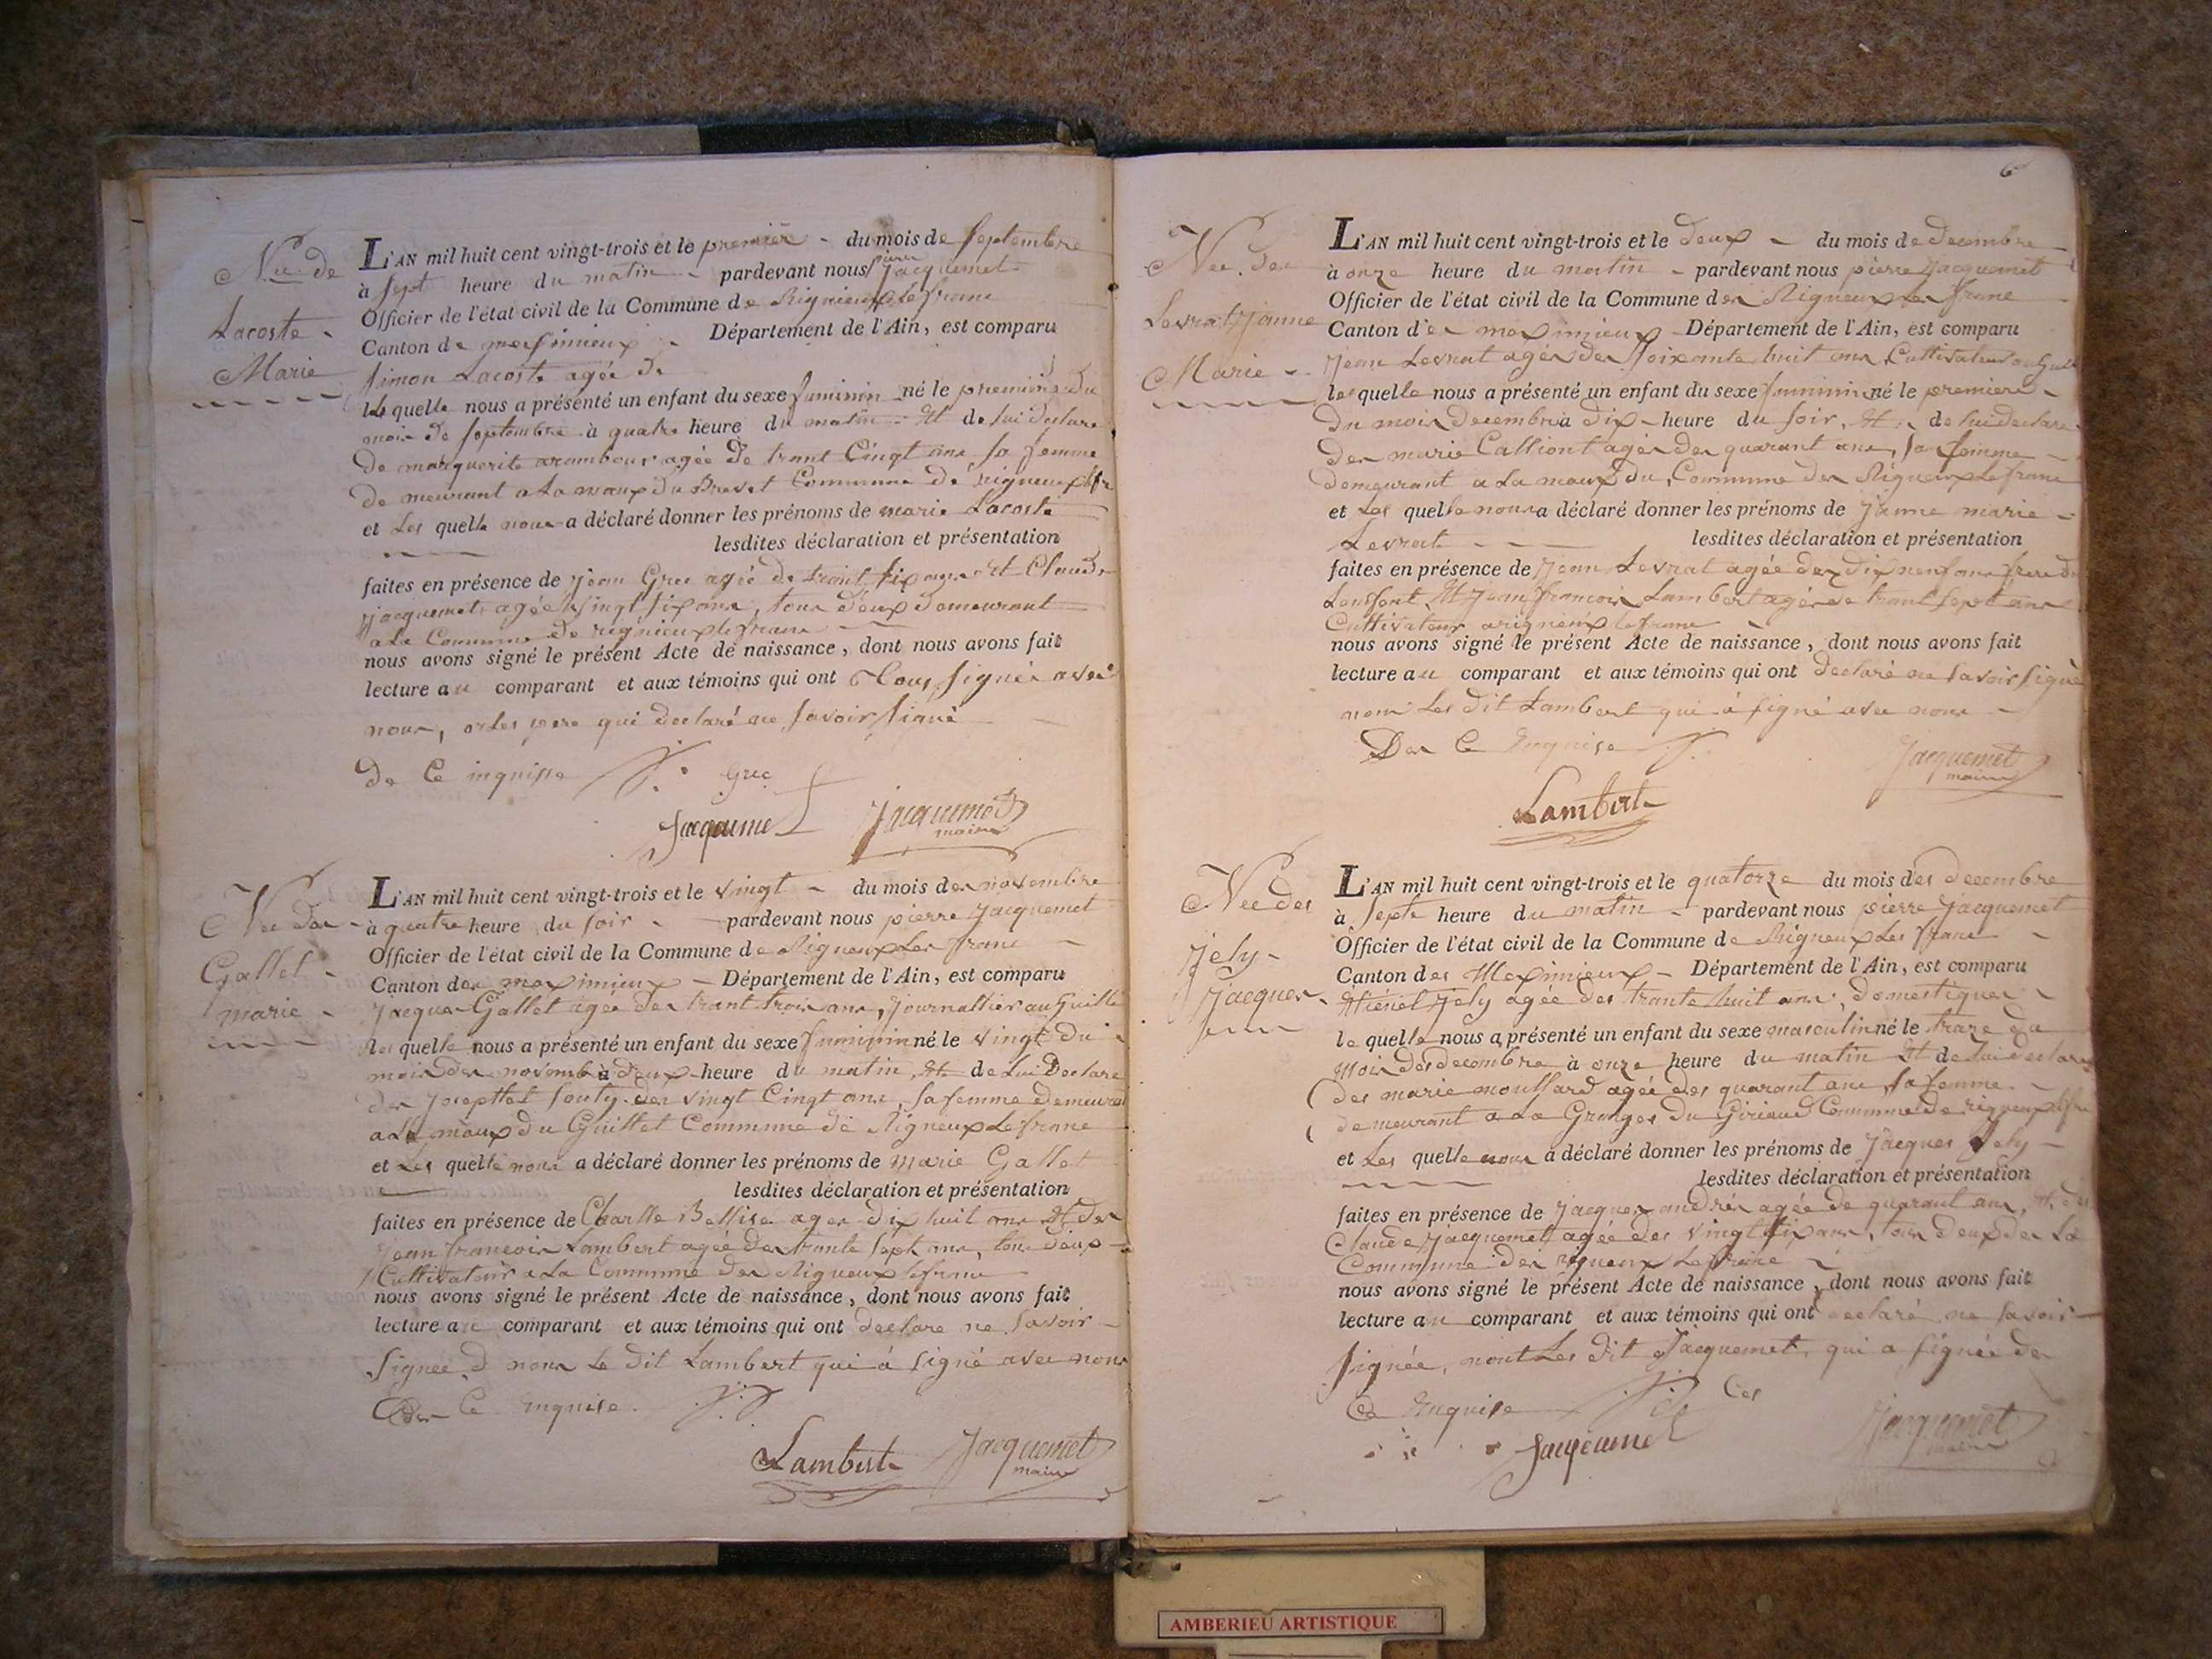 Née de
Lacoste
Marie
L'AN mil huit cent vingt-trois et le premier du mois de septembre
à sept heure du matin pardevant nous pierre Jacquemet
Officier de l'état civil de la Commune de Rignieux le franc
Canton de meximieux Département de l'Ain, est comparu
simon Lacoste agée de
le quelle nous a présenté un enfant du sexe feminin né le premier du
mois de septembre à quatre heure du matin Et de lui declare
de marguerite arambour agée de trant Cingt ans sa femme
de meurant a La maux du Brevet Commune de rigneux le fr
et Les quelle nous a déclaré donner les prénoms de marie Lacoste
lesdites déclaration et présentation
faites en présence de jean Grec agée de trant six ans et Claude
jacquemet agée vingt six ans, tous deux demeurant
a La Commune de regnieux le franc
nous avons signé le présent Acte de naissance, dont nous avons fait
lecture au comparant et aux témoins qui ont tous signée avec
nous, les pere qui declaré ne savoir signé
de Ce inquisse Grec
Jacquemet Jacquemet
maire
Née der
Gallet
marie
L'AN mil huit cent vingt-trois et le vingt du mois der novembre
à quatre heure du soir pardevant nous pierre Jacquemet
Officier de l'état civil de la Commune de Rigneux Ler franc
Canton der meximieux Département de l'Ain, est comparu
Jacque Gallet agée der trant trois ans, journallier au Guillet
les quelle nous a présenté un enfant du sexe feminin né le vingt du
mois der novembre à deux heure du matin, Et de Lui Declare
der Josephtet souty der vingt Cingt ans, sa femme demeurant
a La maux du Guillet Commune de Rigneux Le franc
et Les quelle nous a déclaré donner les prénoms de Marie Gallet
lesdites déclaration et présentation
faites en présence de Charlle Bellise ager dix huit ans Et der
jean francois Lambert agée der trante sept ans, tous deux
Cultivateur a La Commune der Rigneux le franc
nous avons signé le présent Acte de naissance, dont nous avons fait
lecture au comparant et aux témoins qui ont declare ne savoir
Signée nous Le dit Lambert qui à signé avec nous
Der Ce inquise
Lambert Jacquemet
maire
6
Née der
Levrat janne
Marie
L'AN mil huit cent vingt-trois et le deux du mois de decembre
à onze heure du matin pardevant nous pierre Jacquemet
Officier de l'état civil de la Commune der Rigneux Ler franc
Canton der meximieux Département de l'Ain, est comparu
Jean Levrat agée der soixante huit ans Cultivateur
les quelle nous a présenté un enfant du sexe feminin né le premier
du mois decembre à dix heure du soir, Et de lui declare
der marie Calliont agée der quarant ans, sa femme
demeurant a La maux du, Commune der Rigneux Le franc
et Les quelle nous a déclaré donner les prénoms de janne marie
Levrat lesdites déclaration et présentation
faites en présence de Jean Levrat agée der dix neuf ans frere de
Lenffent, Et Jean francois Lambert agée de trant sept ans
Cultivateur a rigneux le franc
nous avons signé le présent Acte de naissance, dont nous avons fait
lecture au comparant et aux témoins qui ont declaré ne savoir signè
non Les dit Lambert qui à signé avec nous
Der Ce Enquise
Jacquemet
maire
Lambert
Née der
jely
jacquer
L'AN mil huit cent vingt-trois et le quatorze du mois der Decembre
à sept heure du matin pardevant nous pierre Jacquemet
Officier de l'état civil de la Commune de Rigneux Les franc
Canton der Meximieux Département de l'Ain, est comparu
jely agée der trante huit ans, domestiquer
le quelle nous a présenté un enfant du sexe masculin né le traze du
mois der decembre à onze heure du matin Et de Lui declare
der marie moussard agée der quarant ans, sa femme
demeurant a La Granges du Girieux Commune de rigneux le fr
et Les quelle nous a déclaré donner les prénoms de jacques jely
lesdites déclaration et présentation
faites en présence de jacquer andrée agée de quarant ans, Et der
Claude jacquemet agée der vingt six ans, tous deux der La
Commune der rigneux Le franc
nous avons signé le présent Acte de naissance, dont nous avons fait
lecture au comparant et aux témoins qui ont declaré ne savoir
signée, nont Les dit Jacquemet, qui a signée de
Ce Enquise
Jacquemet Jacquemet
maire
AMBERIEU ARTISTIQUE